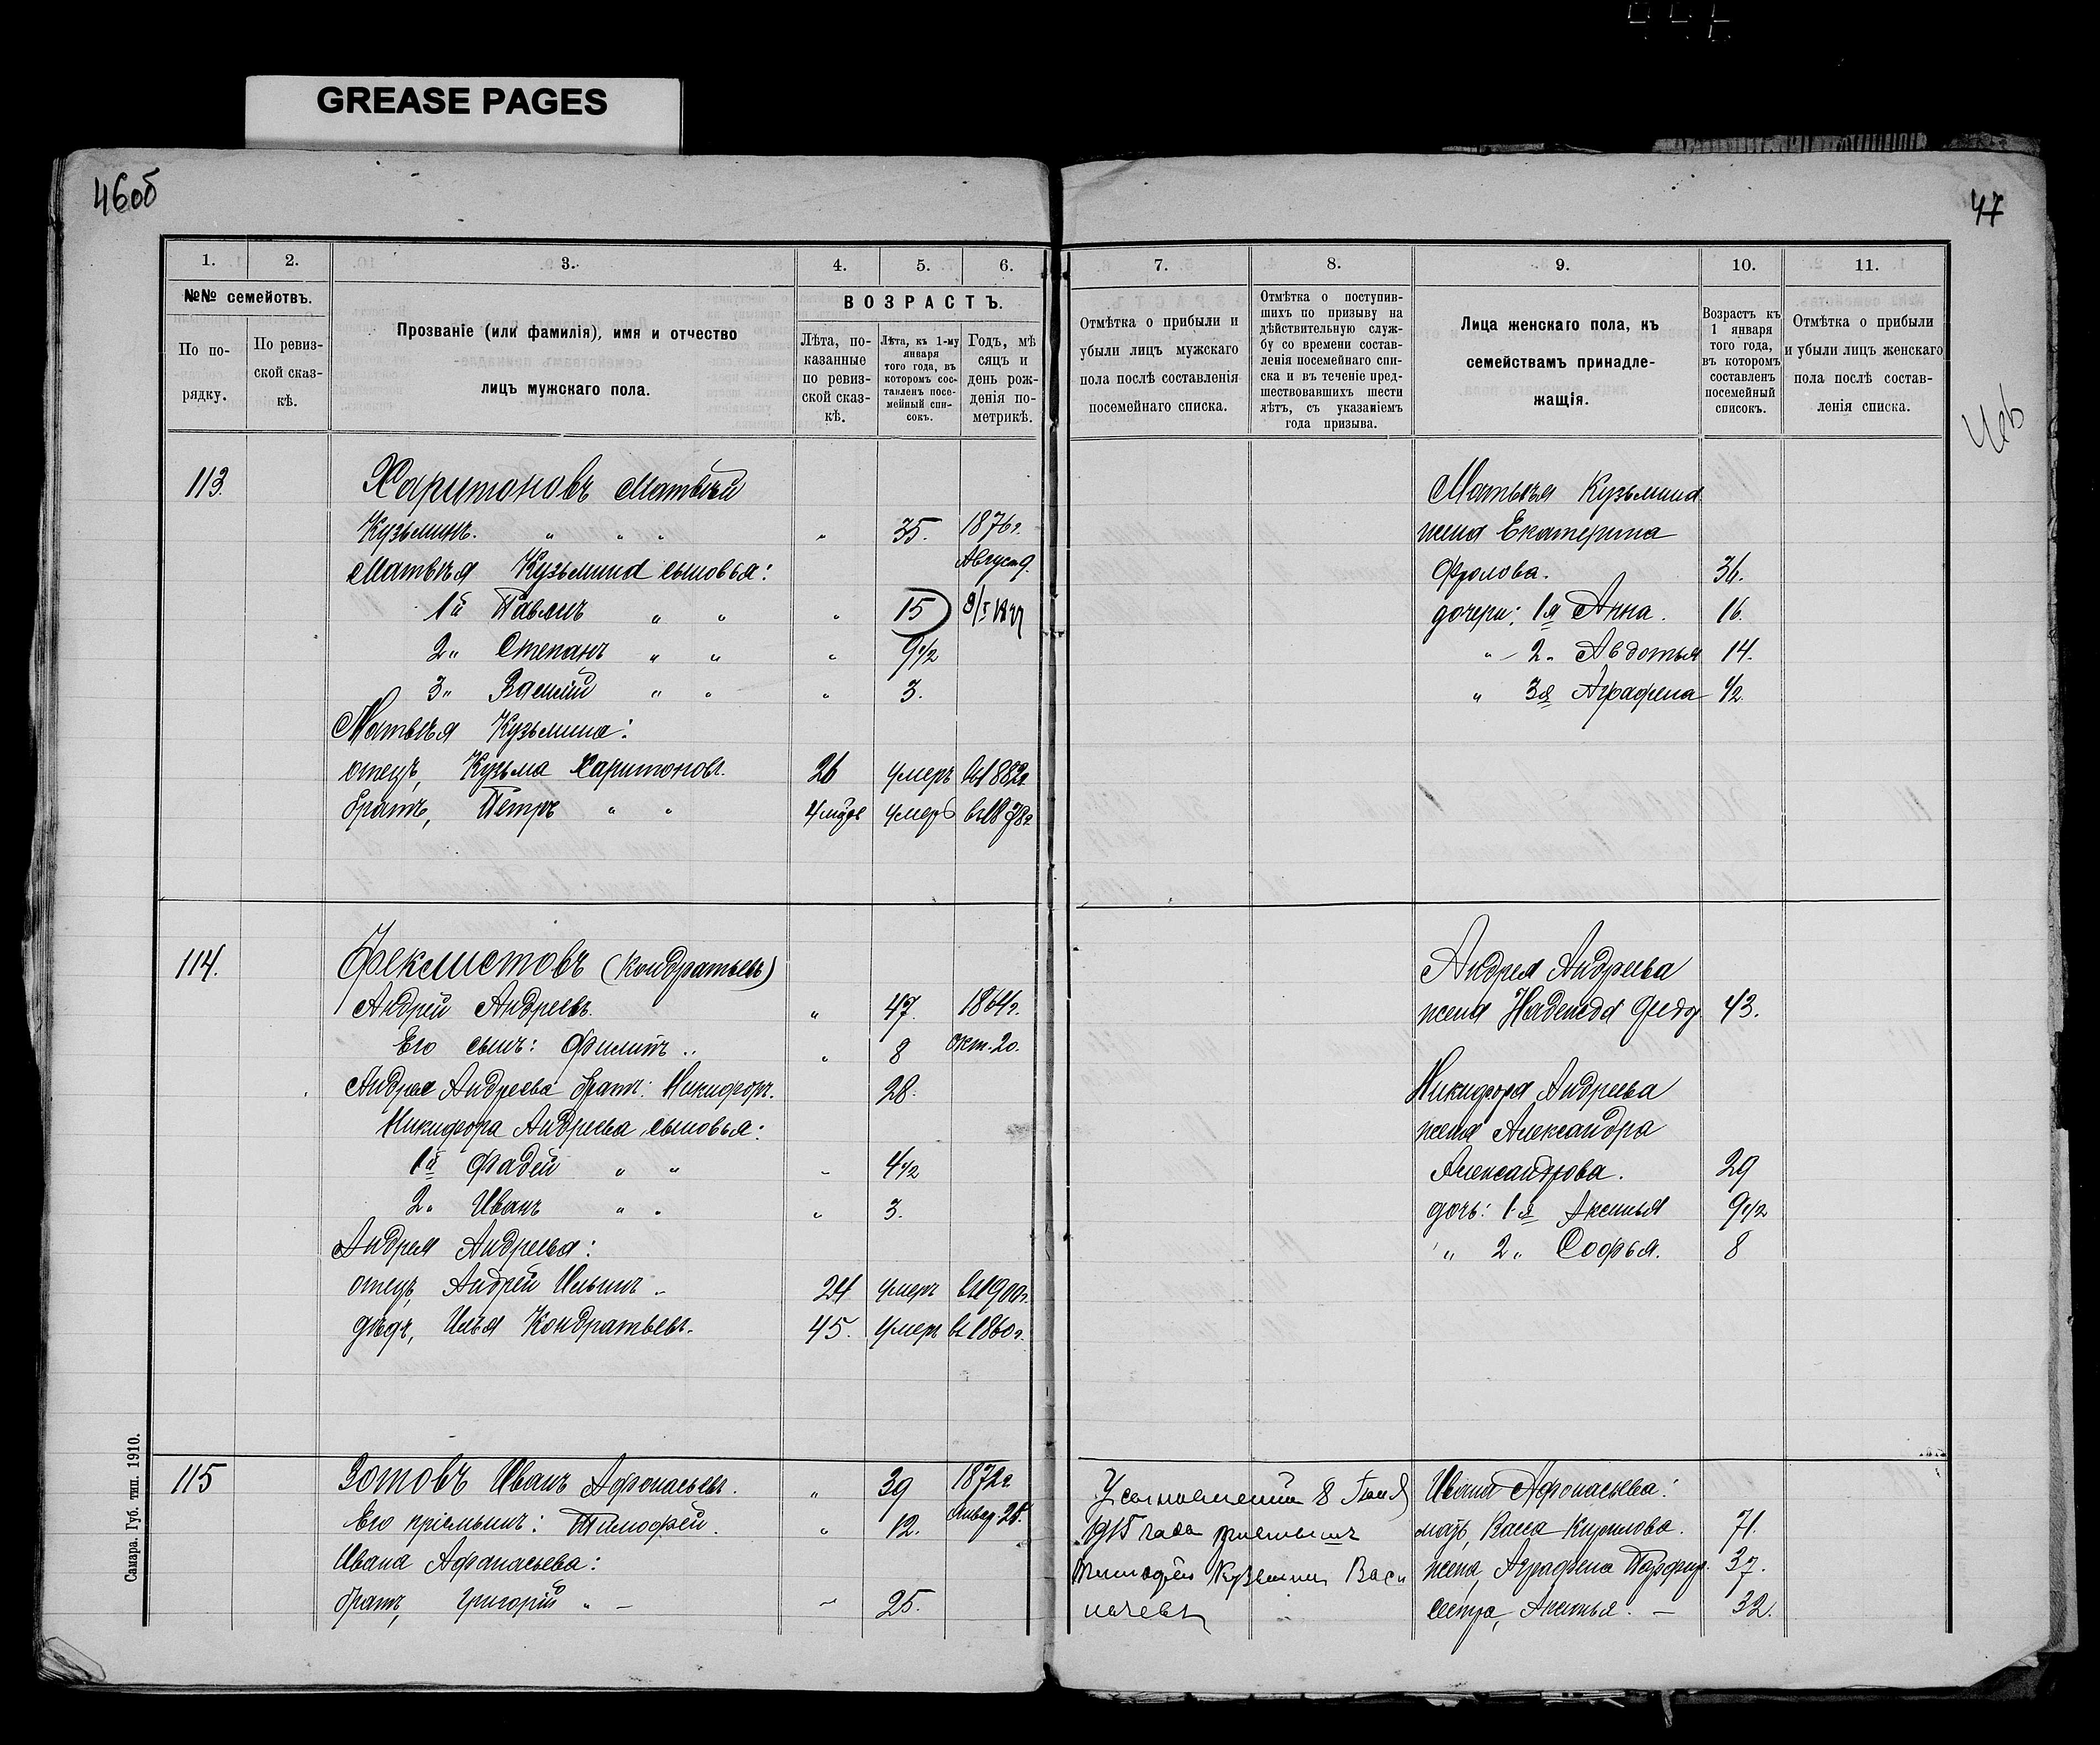 GREASE PAGES
46об
47
1. 2. 3. 4. 5. 6.
№№ семействъ.
По по-
рядку.
По ревиз-
ской сказ-
кѣ.
Прозваніе (или фамилія), имя и отчество
лицъ мужскаго пола.
ВОЗРАСТЪ.
Лѣта, по-
казанные
по ревиз-
ской сказ-
кѣ.
Лѣта, къ 1-му
января
того года, въ
которомъ сос-
тавленъ посе-
мейный спи-
сокъ.
Годъ, мѣ
сяцъ и
день рож-
денія по-
метрикѣ.
113.
Харитоновъ Матвѣй
Кузьминъ. " " " " 35. 1876г.
Матвѣя Кузьмина сыновья: Август 9.
1й Павелъ " " " 15
2" Степанъ " " " 9 1/2
3" Василій " " " 3.
Матвѣя Кузьмина:
отецъ, Кузьма Харитоновъ. 26 умеръ в 1882г.
братъ, Петръ " " умеръ
114.
Феклистовъ (Кондратьевъ)
Андрей Андреевъ. " 47. 1864г.
Его сынъ: Филиппъ " 8 Окт. 20.
Андрея Андреева братъ: Никифоръ. 28.
Никифора Андреева сыновья:
1й Фадей " " 4 1/2
2" Иванъ " " " 3.
Андрея Андреева:
отецъ, Андрей Ильинъ 24 умеръ в 1900г.
дѣдъ, Илья Кондратьевъ. 45. умеръ в 1860г.
115
Зотовъ Иванъ Афонасьевъ. " 39 1872г.
Его пріемышъ: Тимофей. " 12. Январ. 28.
Ивана Афанасьева:
братъ, Григорій " – 25.
Самара. Губ. тип. 1910.
7. 8. 9. 10. 11.
Отмѣтка о прибыли и
убыли лицъ мужскаго
пола послѣ составленія
посемейнаго списка.
Отмѣтка о поступив-
шихъ по призыву на
дѣйствительную служ-
бу со времени состав-
ленія посемейнаго спи-
ска и въ теченіе пред-
шествовавшихъ шести
лѣтъ, съ указаніемъ
года призыва.
Лица женскаго пола, къ
семействамъ принадле-
жащія.
Возрастъ къ
1 января
того года,
въ которомъ
составленъ
посемейный
списокъ.
Отмѣтка о прибыли
и убыли лицъ женскаго
пола послѣ состав-
ленія списка.
Матвѣя Кузьмина
жена Екатерина
Фролова. 36.
дочери: 1я Анна. 16.
" 2" Авдотья 14.
" 3я Аграфена 1/2
Андрея Андреева
жена Надежда Федор. 43.
Никифора Андреева
жена Александра
Александрова. 29
дочь: 1я Аксинья 9 1/2
" 2" Софья. 8
8
1915 года
Тимофей Васи
Ивана Афонасьева:
мать, Васса Кирилова. 71.
жена, Аграфена Парфир. 37.
сестра, Аксинья. – 32.